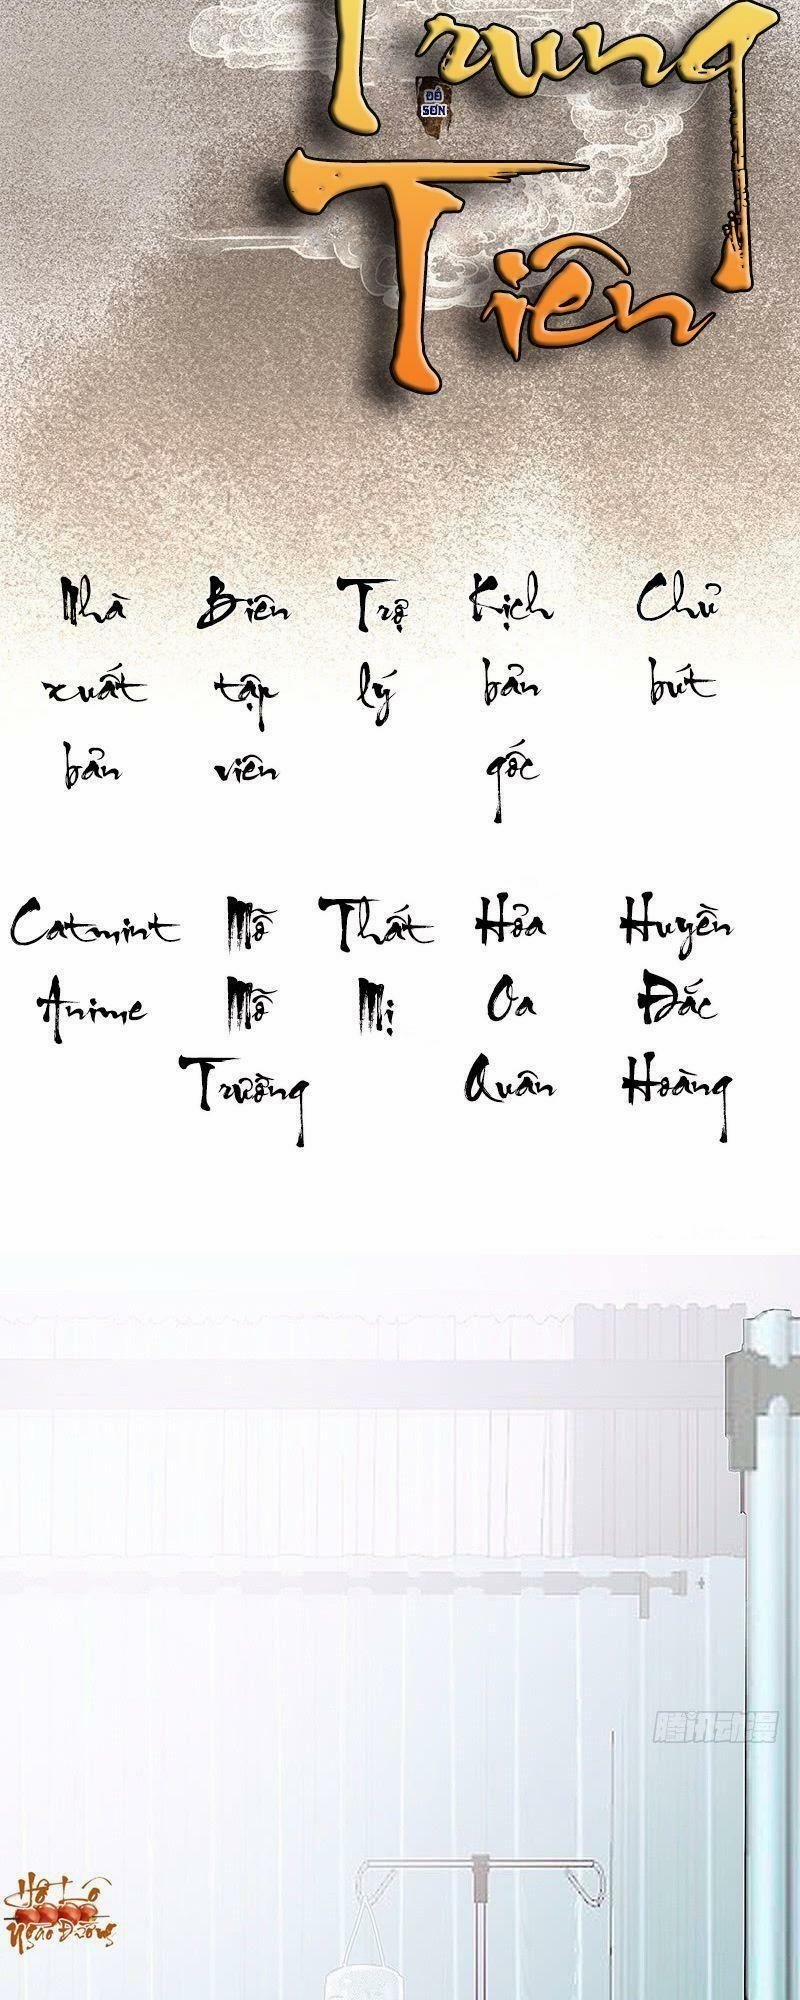 Trung
ĐỒ
SƠN
Tiên
Nhà Biên Trợ Kịch Chủ
xuất tập lý bản bút
bản viên gốc
Catmint Mỗ Thất Hỏa Huyền
Anime Mỗ Mị Oa Đắc
Trường Quân Hoàng
腾讯动漫
Hồ Lô
Ngào Đường